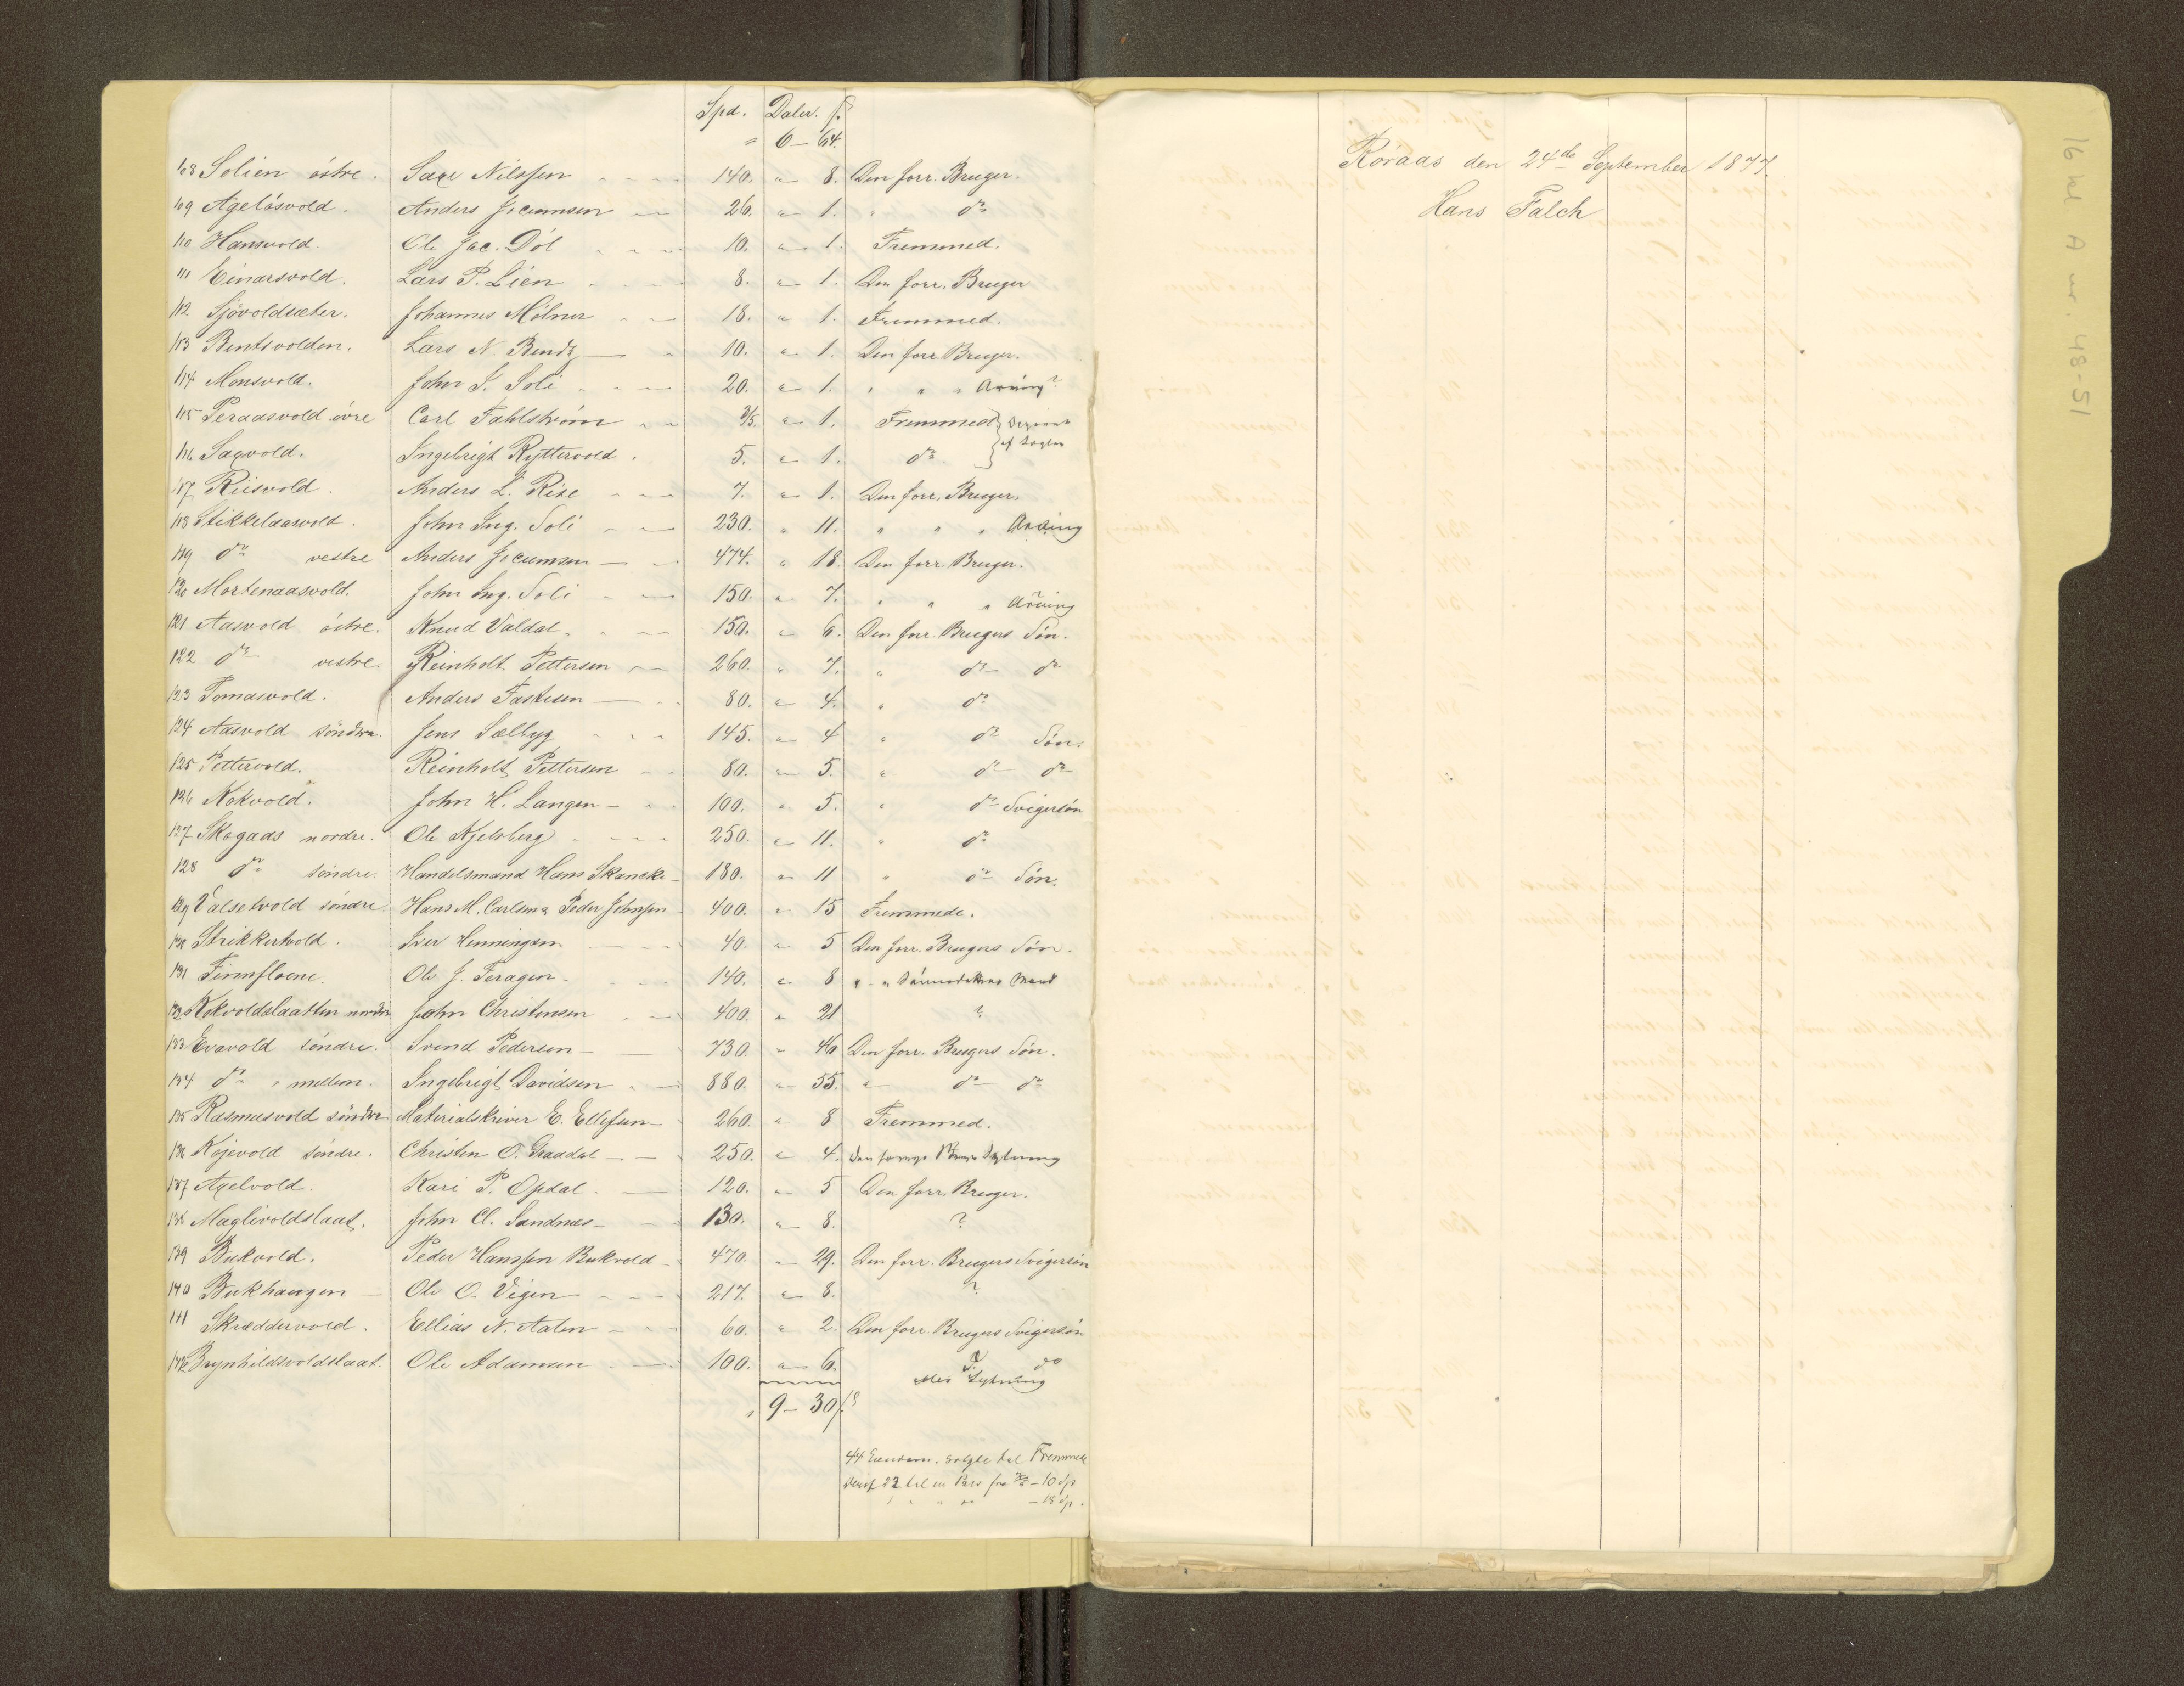 Spd. Daler. ſ.
" 6 – 64.
108 Solien östre. Saxe Nilssen 140. " 8. Den forr. Bruger.
109 Agelösvold. Anders Jocumsen 26. " 1. " do
110 Hansvold. Ole Jac. Döl 10. " 1. Fremmed.
111 Einarsvold. Lars P. Lien 8. " 1. Den forr. Bruger
112 Sjövoldsæter. Johannes Mölner 18. " 1. Fremmed.
113 Bentsvolden. Lars N. Bendz 10. " 1. Den forr Bruger.
114 Monsvold. John J. Soli 20. " 1. " " " Arving?
115 Peraasvold övre Carl Fahlström 3/5. " 1. Fremmed
116 Saxvold. Ingebrigt Ryttervold. 5. " 1. do
117 Riisvold. Anders L. Rise 7. " 1. Den forr. Bruger.
118 Stikkelaasvold. John Ing. Soli 230. " 11. " " " Arving
119 do vestre Anders Jocumsen 474. " 18. Den forr. Bruger.
120 Mortenaasvold. John Ing. Soli 150. " 7. " " " Arving
121 Aasvold östre. Knud Valdal 150. " 6. Den forr. Brugers Sön.
122 do vestre. Reinholt Pettersen 260. " 7. " do do
123 Tomasvold. Anders Tastesen 80. " 4. " do
124 Aasvold söndre. Jens Sælbyg 145. " 4 " do Sön.
125 Pettervold. Reinholt Pettersen 80. " 5. " do do
126 Kokvold. John H. Langen 100. " 5. " do Svigersön
127 Skogaas nordre. Ole Kjelsberg 250. " 11. " do
128 do söndre. Handelsmand Hans Skancke 180. " 11 " do Sön.
129 Valsetvold söndre. Hans M. Carlsen & Peder Johnsen 400. " 15 Fremmede.
130 Strikkertvold. Iver Henningsen 40. " 5 Den forr. Brugers Sön.
131 Finnfloene. Ole J. Feragen 140. " 8 " " Sönnedatters Mand
132 Kokvoldslaatten nordre John Christensen 400. " 21 ?
133 Evavold söndre. Svend Pedersen 730. " 46 Den forr. Brugers Sön.
134 do " mellem. Ingebrigt Davidsen 880. " 55. " do do
135 Rasmusvold söndre Materialskriver E. Ellefsen 260. " 8 Fremmed.
136 Köjevold söndre. Christen O. Graadal 250. " 4.
137 Axelvold. Kari P. Opdal. 120. " 5 Den forr. Bruger.
138 Maglivoldslaat. John Cl. Sandnes 130. " 8. ?
139 Bukvold. Peder Hanssen Bukvold 470. " 29. Den forr. Brugers Svigersön
140 Bukhaugen Ole O. Vigen 217. " 8. ?
141 Skræddervold. Ellias N. Aalen 60. " 2. Den forr. Brugers Svigersön
142 Brynhildsvoldslaat. Ole Adamsen 100. " 6. do
" 9 – 30 ſ.
44 solgte til Fremmede
deraf 22 til en Pris fra – 10
– 18
Röraas den 24de September 1877.
Hans Falch
16 hd A nr. 48-51